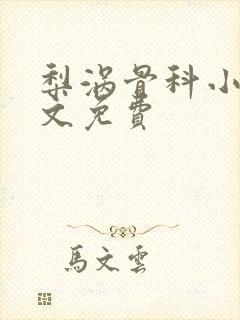 梨涡骨科小
文免費
馬文雲